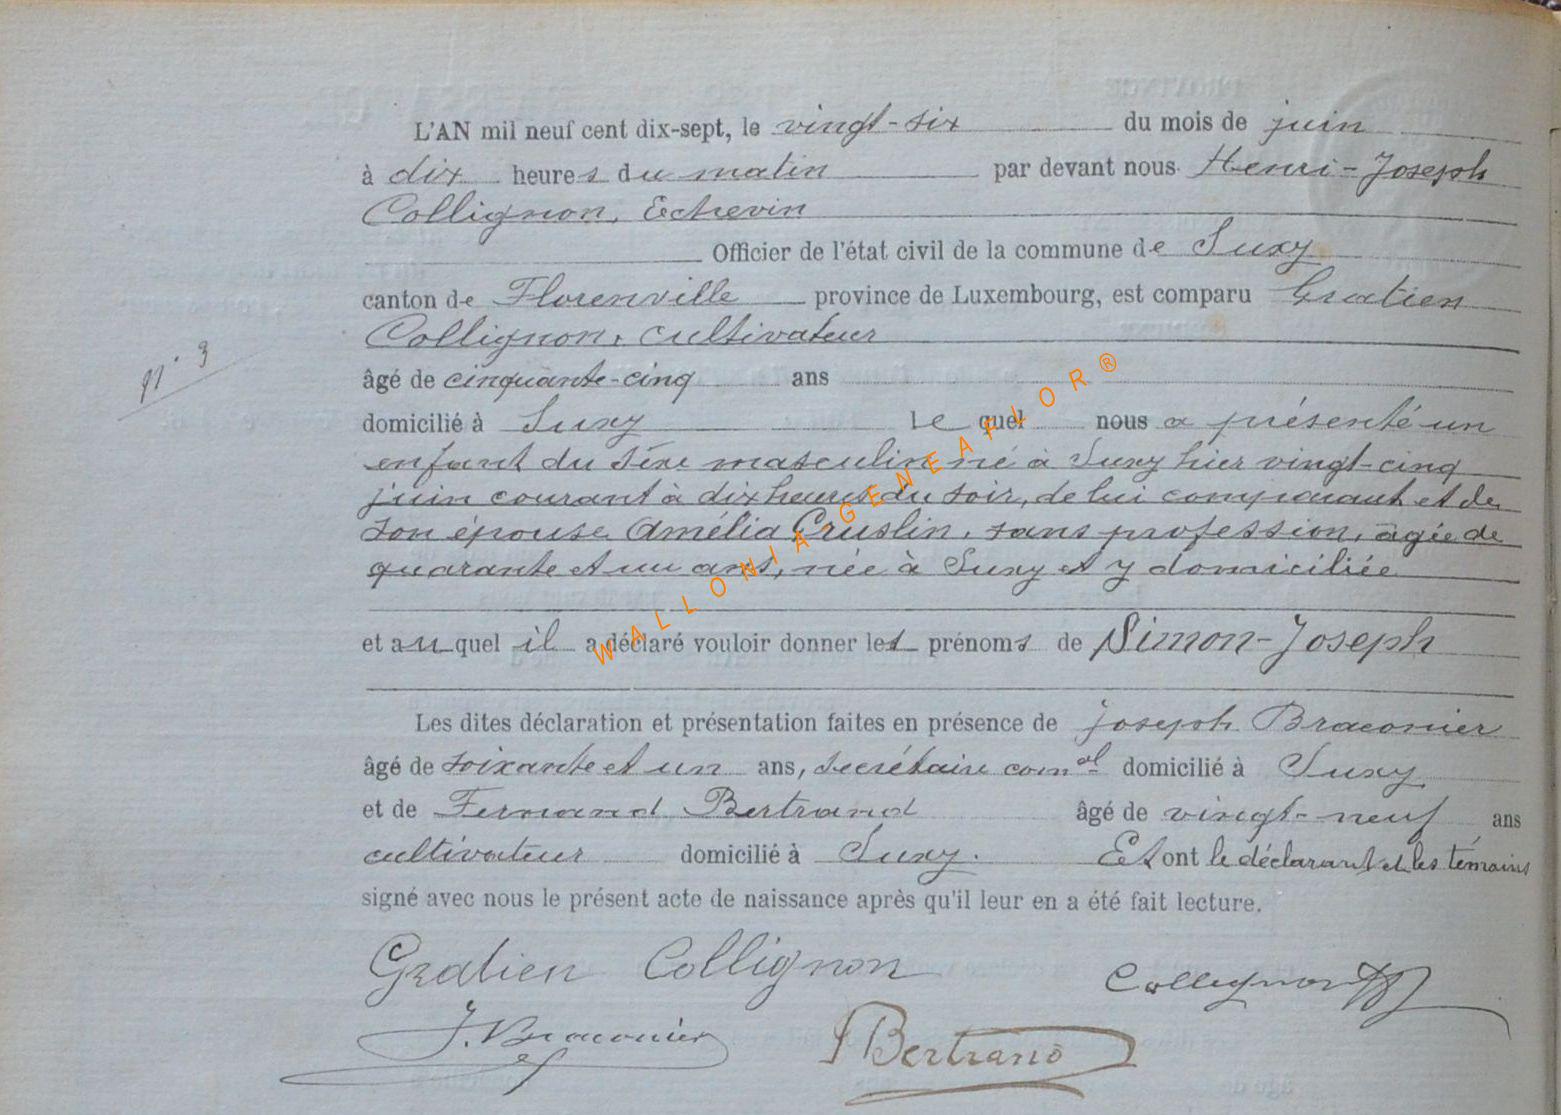 L'AN mil neuf cent dix-sept, le vingt-six du mois de juin
à dix heures du matin par devant nous Henri-Joseph
Collignon, Echevin
Officier de l'état civil de la commune de Suxy
canton de Florenville province de Luxembourg, est comparu Gratien
Collignon, cultivateur
n° 3
âgé de cinquante-cinq ans
domicilié à Suxy Le quel nous a présenté un
enfant du sexe masculin né à Suxy hier vingt-cinq
juin courant à dix heures du soir, de lui comparant et de
son épouse Amélia Gruslin, sans profession, âgée de
quarante et un ans, née à Suxy et y domiciliée
et au quel il a déclaré vouloir donner les prénoms de Simon-Joseph
Les dites déclaration et présentation faites en présence de Joseph Braconier
âgé de soixante et un ans, secrétaire comal domicilié à Suxy
et de Fernand Bertrand âgé de vingt-neuf ans
cultivateur domicilié à Suxy. Et ont le déclarant et les témoins
signé avec nous le présent acte de naissance après qu'il leur en a été fait lecture.
Gratien Collignon Collignon HJ
J. Braconier
F Bertrand
WALLONIA-GENEAFLOR®